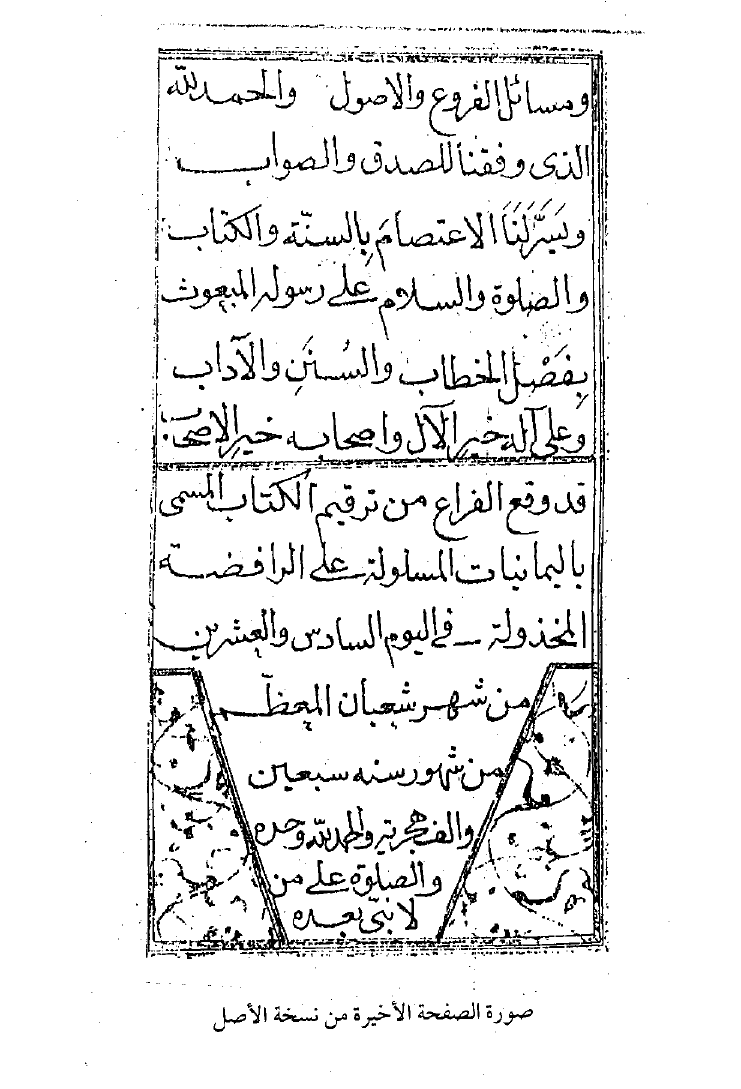 ومسائل الفروع والاصول والحمد لله
الذى وفقنا للصدق والصواب
ويَسَّرَلَنَا الاعتصامَ بِالسنّة والكتاب
والصلوة والسلام على رسوله المبعوث
بِفَصْل الخطاب والسُنَنِ والآداب
وعلى آله خيرِ الآل واصحابه خير الاصحاب
قد وقع الفراغ من ترقيم الكتاب المسمى
باليمانيات المسلولة على الرافضة
المخذولة فى اليوم السادس والعشرين
من شهر شعبان المعظّم
من شهور سنه سبعين
والف هجرية والحمد لله وحده
والصلوة على من
لا نبىّ بعده
صورة الصفحة الأخيرة من نسخة الأصل